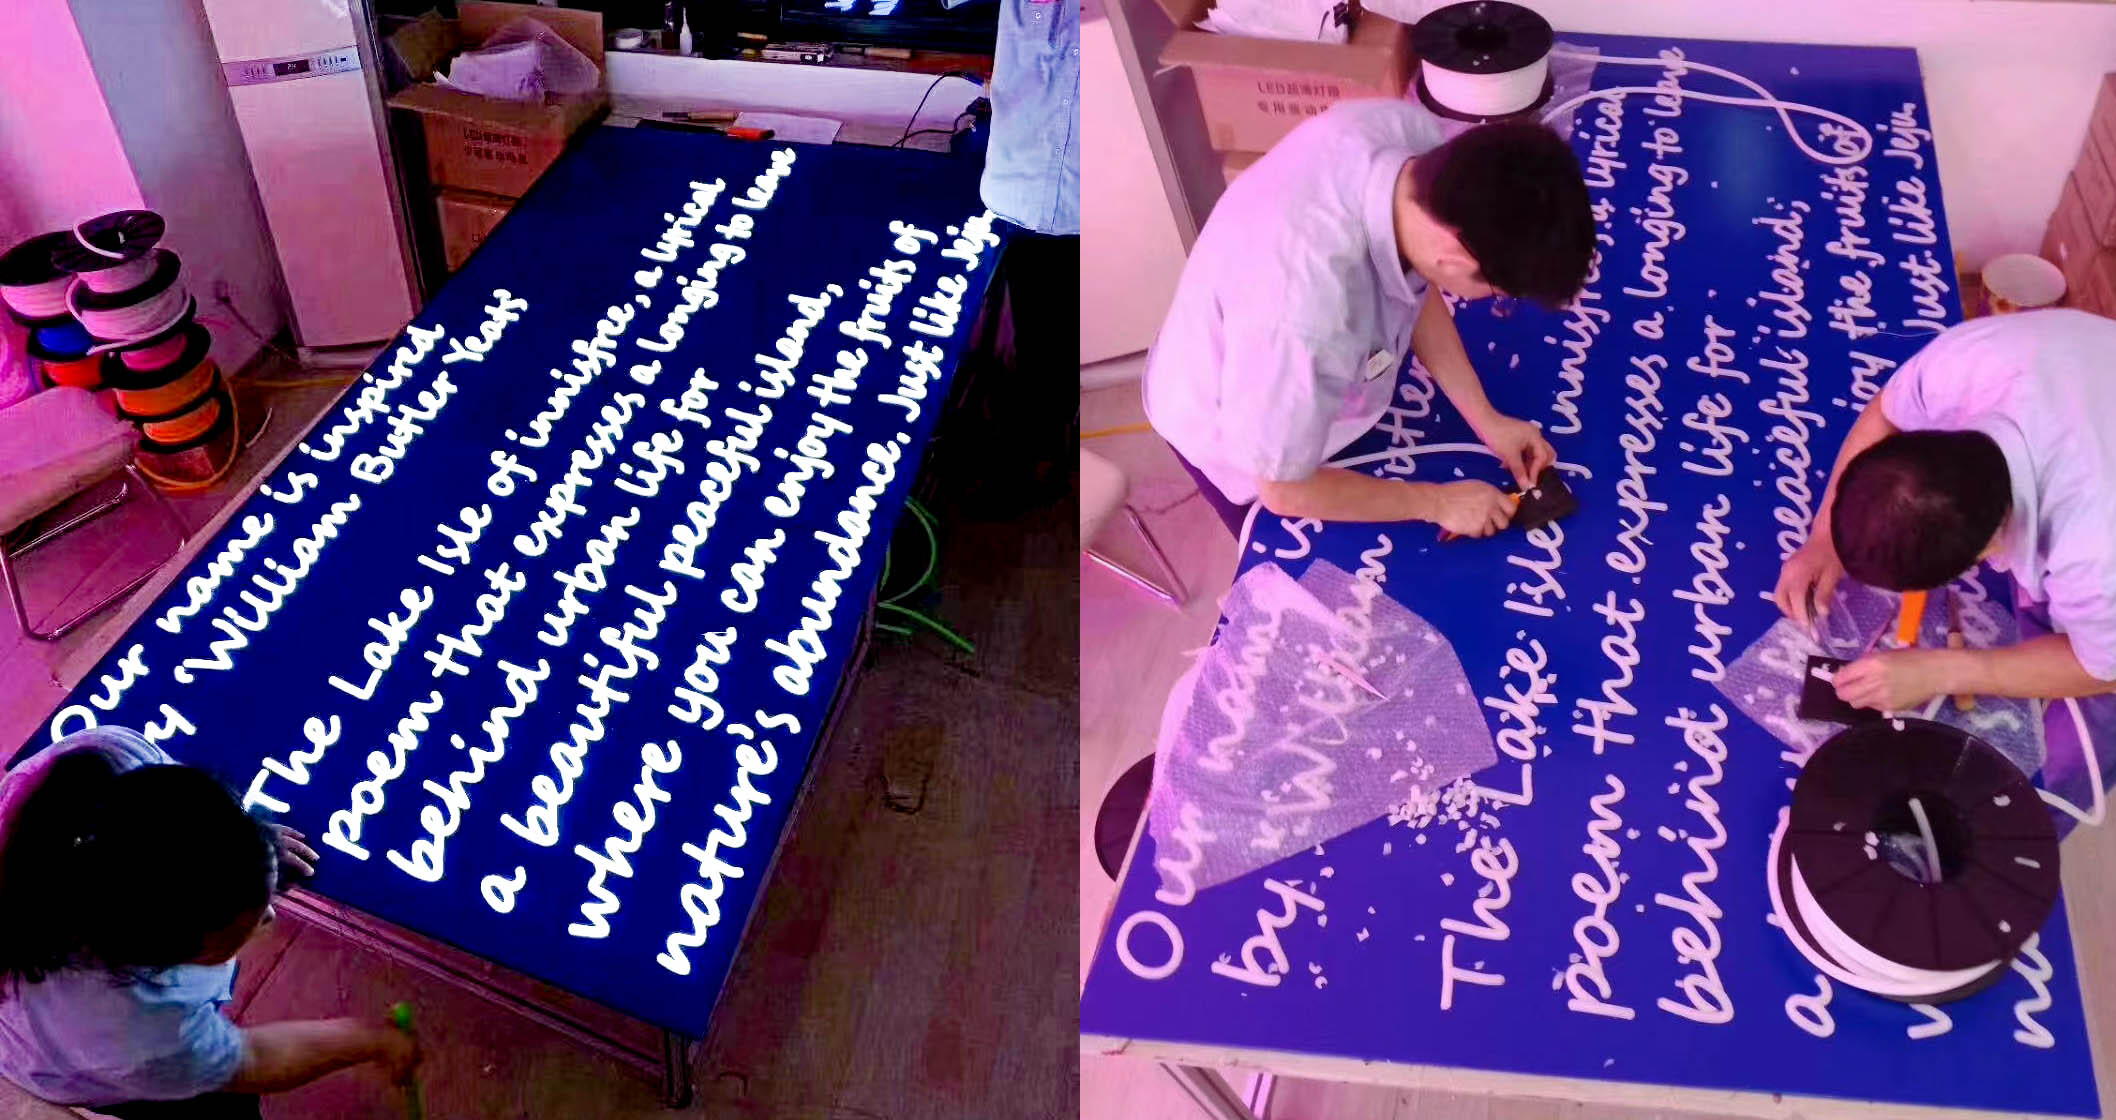 LED超薄灯箱
Our name is inspired
by William Butler Yeats
The Lake Isle of innisfree, a lyrical
poem that expresses a longing to leave
behind urban life for
a beautiful peaceful island,
where you can enjoy the fruits of
nature's abundance. Just like Jeju.
LED超薄灯箱
Our name is
by William Butler
The Lake Isle of innisfree, a lyrical
poem that expresses a longing to leave
behind urban life for
a peaceful island,
enjoy the fruits of
Just like Jeju.